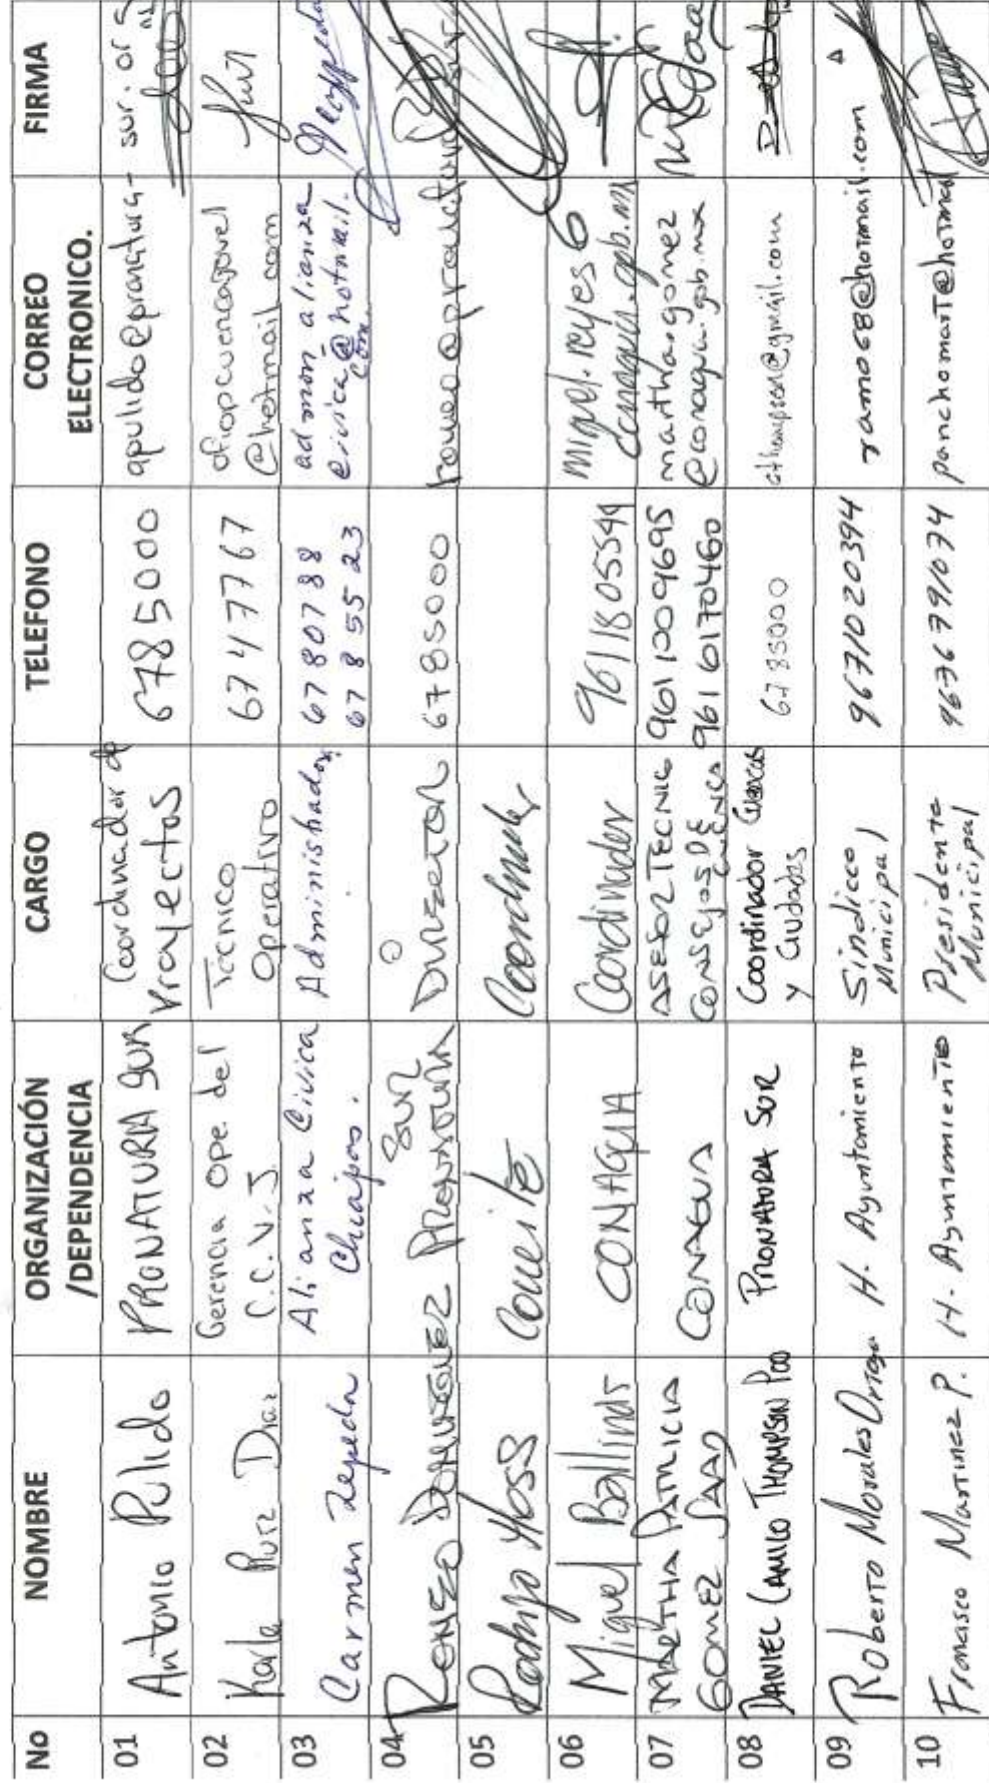 No NOMBRE ORGANIZACIÓN /DEPENDENCIA CARGO TELEFONO CORREO ELECTRONICO. FIRMA
01 Antonio Pulido PRONATURA SUR Coordinador de Proyectos 6785000 apulido@pronatura-sur.or
02 Karla Ruiz Diaz Gerencia Ope. del C.C.V.J. Tecnico Operativo 6747767 ofiopcuencajovel @hotmail.com
03 Carmen Zepeda Alianza Civica Chiapas. Administradora 6780788 678 55 23 admon_alianza civica@hotmail.com
04 ROMEO DOMINGUEZ PRONATURA SUR DIRECTOR 6785000
05 Comité Coordinador
06 Miguel CONAGUA Coordinador 9611805599 miguel.reyes6 conagua.gob.mx
07 MARTHA PATRICIA GOMEZ SAAD CONAGUA ASESOR TECNICO CONSEJOS DE CUENCA 961 1009695 961 6170460 martha.gomez @conagua.gob.mx
08 DANIEL CAMILO THOMPSON POO PRONATURA SUR Coordinador Cuencas y Ciudades 6785000 cthompson@gmail.com
09 Roberto Morales Ortega H. Ayuntamiento Sindico Municipal 9671020394 ramo68@hotmail.com
10 Francisco Martinez P. H. Ayuntamiento Presidente Municipal 9676791074 panchomart@hotmail